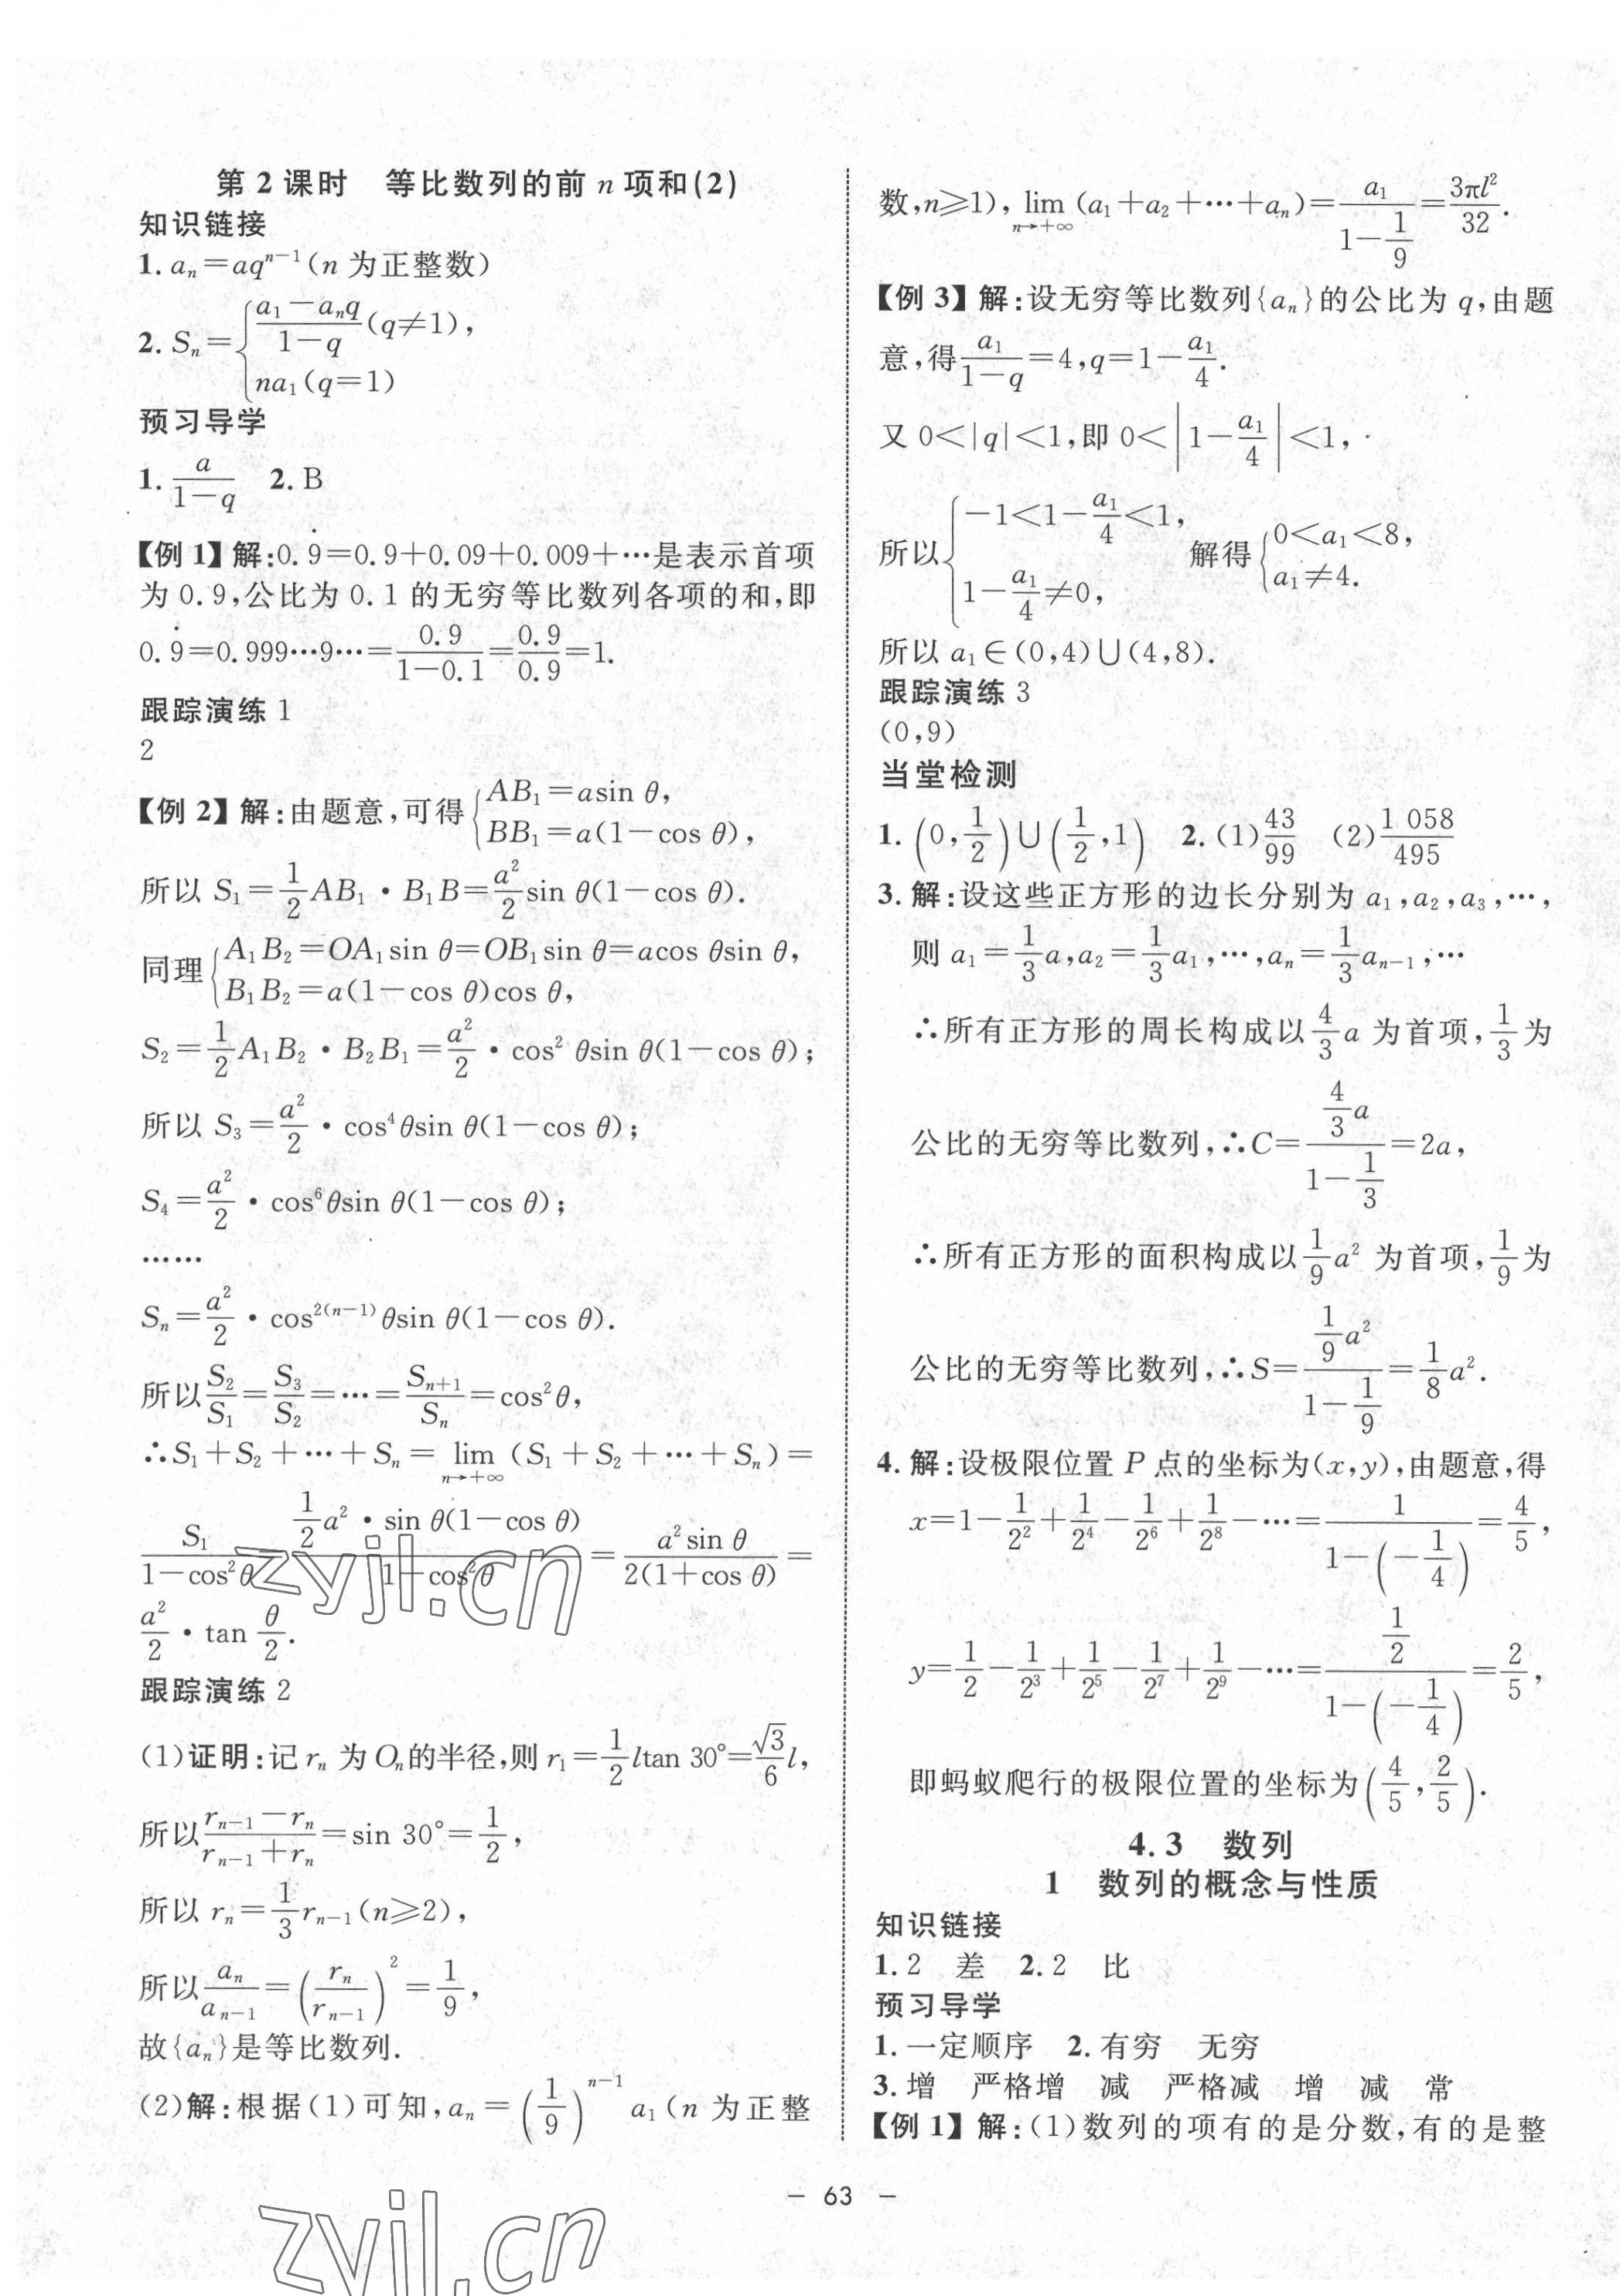 第2课时　等比数列的前 n 项和(2)
知识链接
1. aₙ=aqⁿ⁻¹(n 为正整数)
2. Sₙ={(a₁-aₙq)/(1-q)(q≠1),
na₁(q=1)
预习导学
1. a/(1-q)　2. B
【例1】解:0.9̇=0.9+0.09+0.009+…是表示首项
为 0.9,公比为 0.1 的无穷等比数列各项的和,即
0.9̇=0.999…9…=0.9/(1-0.1)=0.9/0.9=1.
跟踪演练 1
2
【例2】解:由题意,可得{AB₁=asin θ,
BB₁=a(1-cos θ),
所以 S₁=1/2 AB₁·B₁B=a²/2 sin θ(1-cos θ).
同理{A₁B₂=OA₁sin θ=OB₁sin θ=acos θsin θ,
B₁B₂=a(1-cos θ)cos θ,
S₂=1/2 A₁B₂·B₂B₁=a²/2·cos² θsin θ(1-cos θ);
所以 S₃=a²/2·cos⁴θsin θ(1-cos θ);
S₄=a²/2·cos⁶θsin θ(1-cos θ);
……
Sₙ=a²/2·cos²⁽ⁿ⁻¹⁾θsin θ(1-cos θ).
所以 S₂/S₁=S₃/S₂=…=Sₙ₊₁/Sₙ=cos²θ,
∴S₁+S₂+…+Sₙ=lim(n→+∞)(S₁+S₂+…+Sₙ)=
S₁/(1-cos²θ)=(1/2 a²·sin θ(1-cos θ))/(1-cos²θ)=a²sin θ/(2(1+cos θ))=
a²/2·tan θ/2.
跟踪演练 2
(1)证明:记 rₙ 为 Oₙ的半径,则 r₁=1/2 ltan 30°=√3/6 l,
所以(rₙ₋₁-rₙ)/(rₙ₋₁+rₙ)=sin 30°=1/2,
所以 rₙ=1/3 rₙ₋₁(n≥2),
所以 aₙ/aₙ₋₁=(rₙ/rₙ₋₁)²=1/9,
故{aₙ}是等比数列.
(2)解:根据(1)可知,aₙ=(1/9)ⁿ⁻¹a₁(n 为正整
数,n≥1),lim(n→+∞)(a₁+a₂+…+aₙ)=a₁/(1-1/9)=3πl²/32.
【例3】解:设无穷等比数列{aₙ}的公比为 q,由题
意,得 a₁/(1-q)=4,q=1-a₁/4.
又 0<|q|<1,即 0<|1-a₁/4|<1,
所以{-1<1-a₁/4<1,
1-a₁/4≠0,　解得{0<a₁<8,
a₁≠4.
所以 a₁∈(0,4)∪(4,8).
跟踪演练 3
(0,9)
当堂检测
1. (0,1/2)∪(1/2,1)　2. (1)43/99　(2)1 058/495
3. 解:设这些正方形的边长分别为 a₁,a₂,a₃,…,
则 a₁=1/3 a,a₂=1/3 a₁,…,aₙ=1/3 aₙ₋₁,…
∴所有正方形的周长构成以 4/3 a 为首项,1/3 为
公比的无穷等比数列,∴C=(4/3 a)/(1-1/3)=2a,
∴所有正方形的面积构成以 1/9 a² 为首项,1/9 为
公比的无穷等比数列,∴S=(1/9 a²)/(1-1/9)=1/8 a².
4. 解:设极限位置 P 点的坐标为(x,y),由题意,得
x=1-1/2²+1/2⁴-1/2⁶+1/2⁸-…=1/(1-(-1/4))=4/5,
y=1/2-1/2³+1/2⁵-1/2⁷+1/2⁹-…=(1/2)/(1-(-1/4))=2/5,
即蚂蚁爬行的极限位置的坐标为(4/5,2/5).
4.3　数列
1　数列的概念与性质
知识链接
1. 2　差　2. 2　比
预习导学
1. 一定顺序　2. 有穷　无穷
3. 增　严格增　减　严格减　增　减　常
【例1】解:(1)数列的项有的是分数,有的是整
— 63 —
zyjl.cn
zyjl.cn